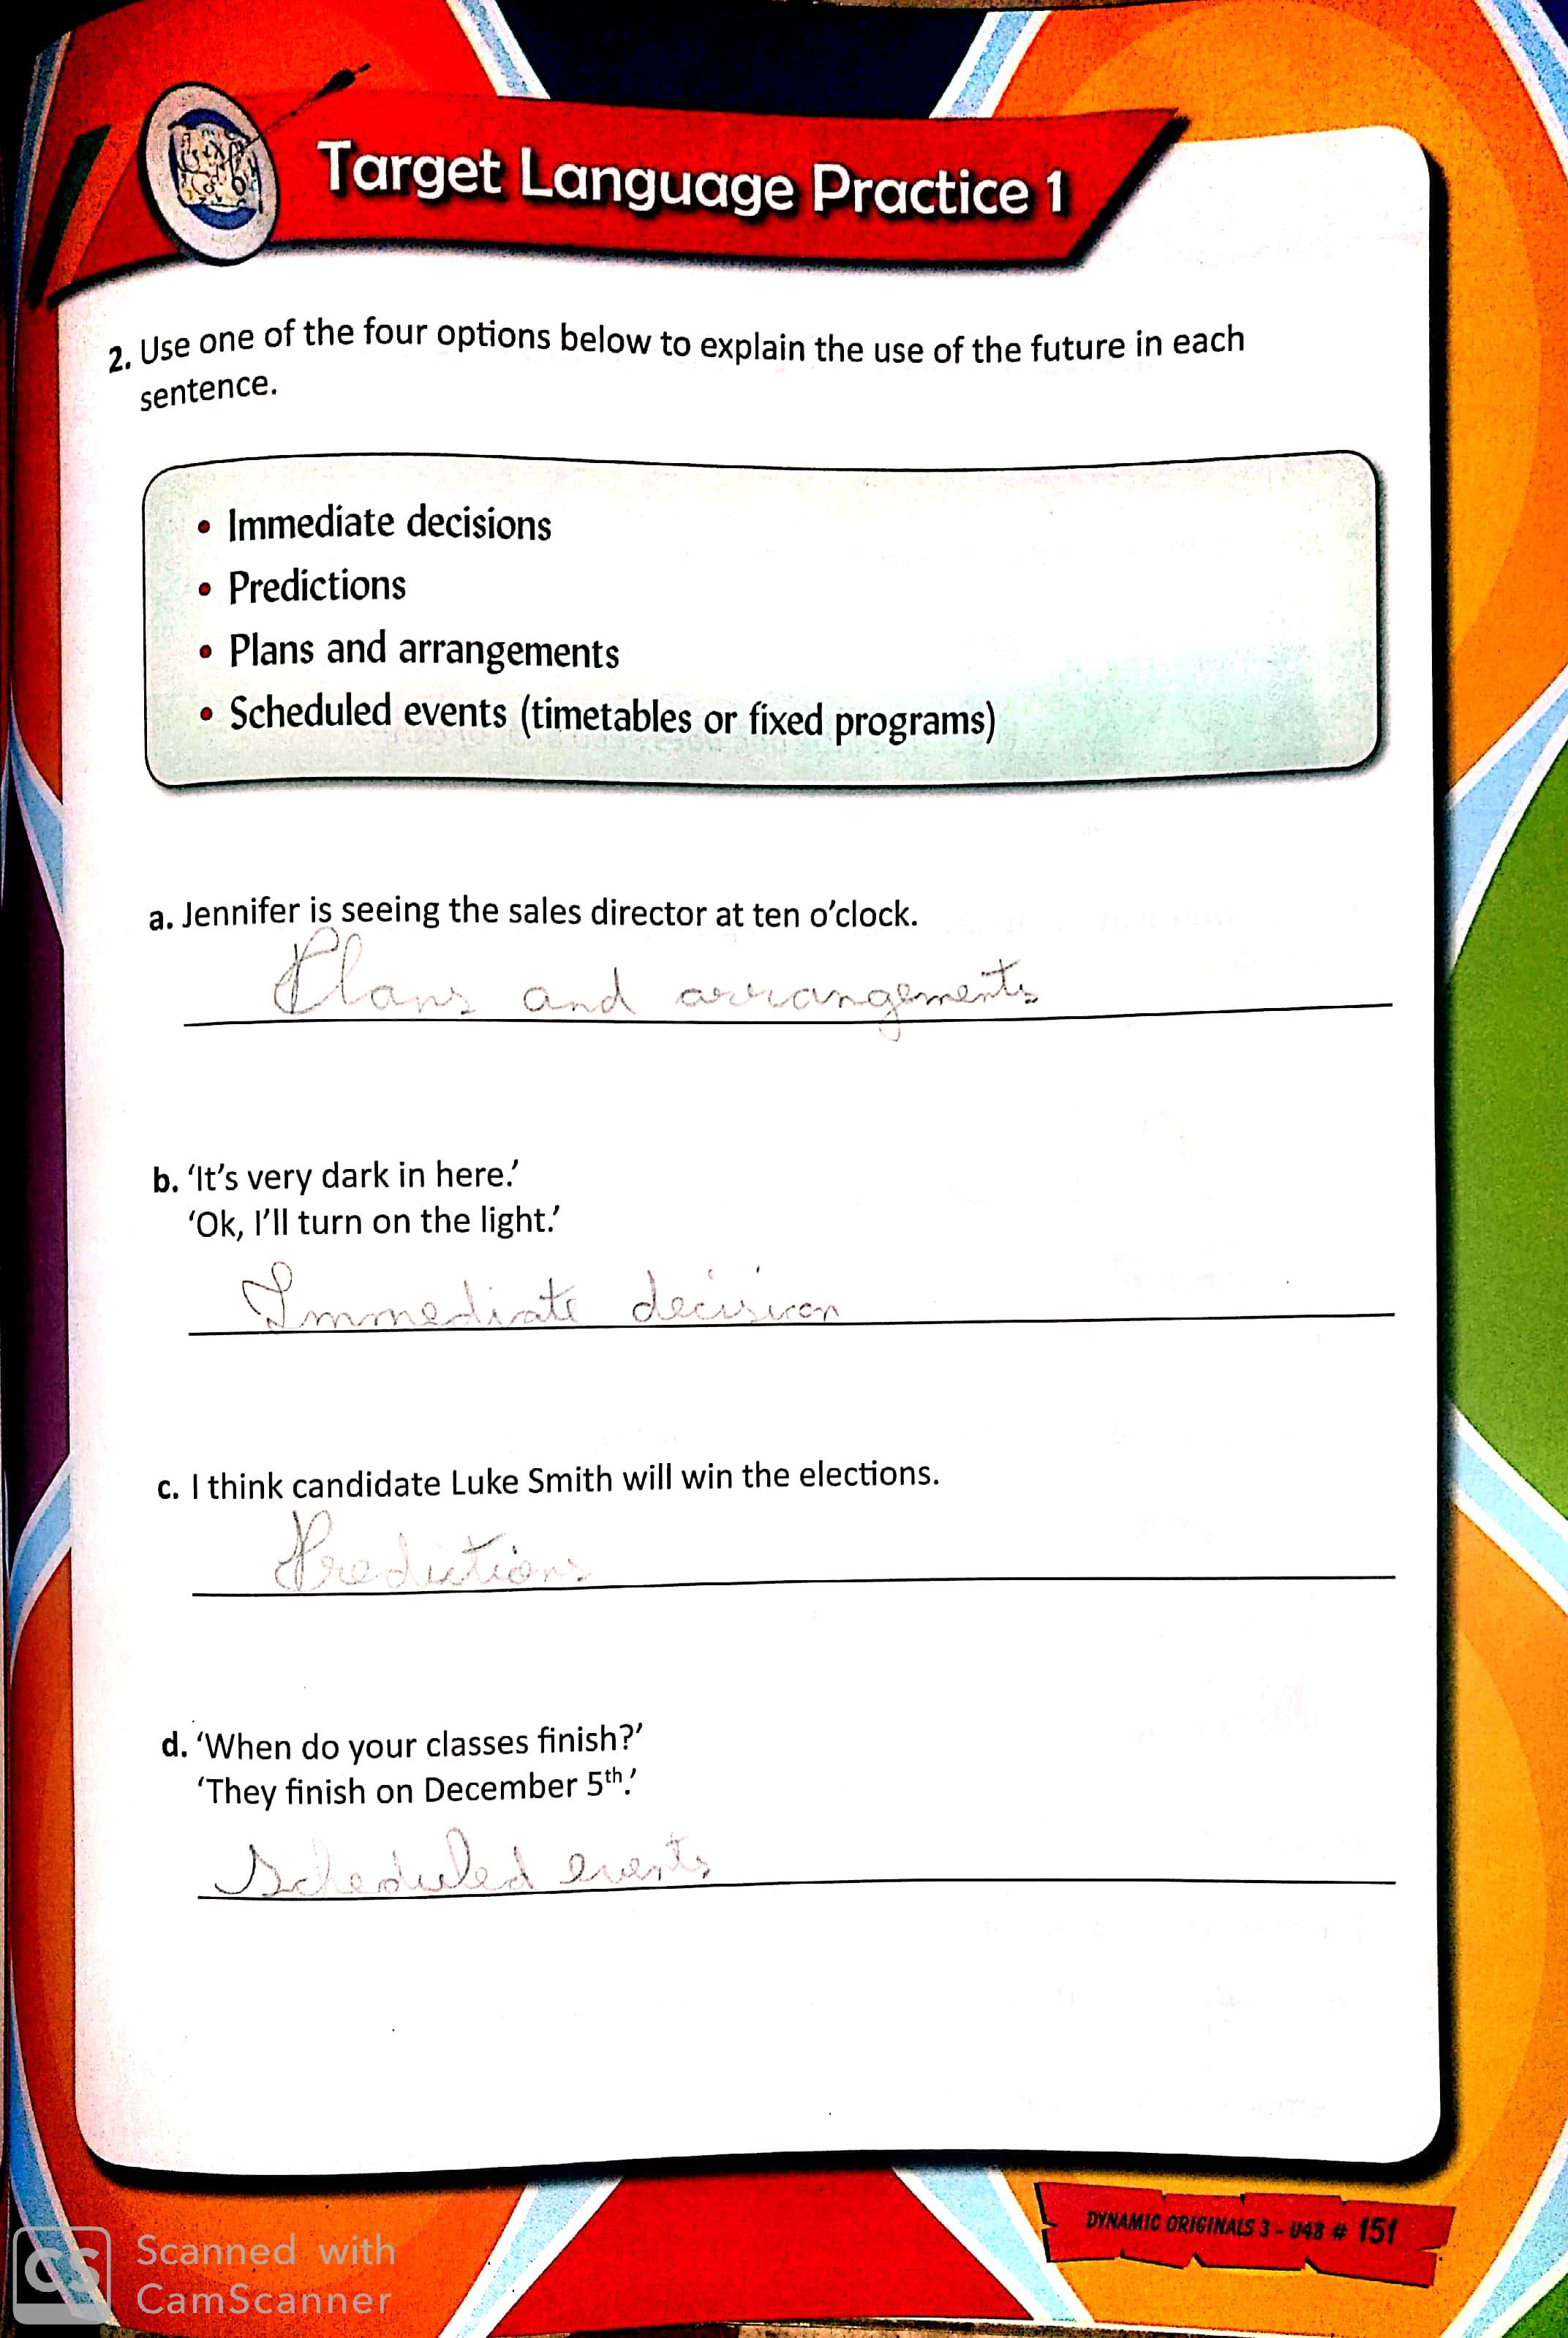 Target Language Practice 1
2. Use one of the four options below to explain the use of the future in each
sentence.
• Immediate decisions
• Predictions
• Plans and arrangements
• Scheduled events (timetables or fixed programs)
a. Jennifer is seeing the sales director at ten o’clock.
Plans and arrangements
b. ‘It’s very dark in here.’
‘Ok, I’ll turn on the light.’
Immediate decision
c. I think candidate Luke Smith will win the elections.
Predictions
d. ‘When do your classes finish?’
‘They finish on December 5th.’
Scheduled events
DYNAMIC ORIGINALS 3 - U48 # 151
CS Scanned with
CamScanner